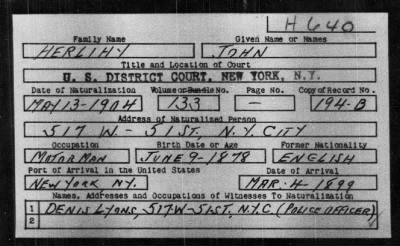 H 640
Family Name Given Name or Names
HERLIHY JOHN
Title and Location of Court
U. S. DISTRICT COURT, NEW YORK, N.Y.
Date of Naturalization Volume or Bundle No. Page No. Copy of Record No.
MAY 13-1904 133 — 194-B
Address of Naturalized Person
517 W.- 51 ST, N.Y. CITY
Occupation Birth Date or Age Former Nationality
MOTORMAN JUNE-9-1878 ENGLISH
Port of Arrival in the United States Date of Arrival
NEW YORK NY. MAR-4-1899
Names, Addresses and Occupations of Witnesses To Naturalization
1 DENIS LYONS, 517-W-51ST, N.Y.C. (POLICE OFFICER)
2